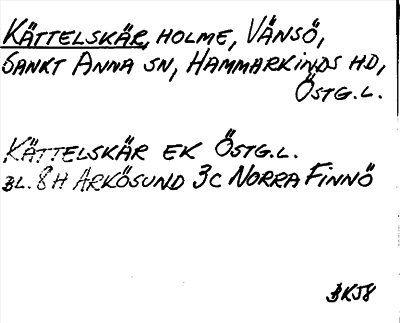 KÄTTELSKÄR, HOLME, VÄNSÖ,
SANKT ANNA SN, HAMMARKINDS HD,
ÖSTG.L.
KÄTTELSKÄR EK ÖSTG.L.
BL. 8H ARKÖSUND 3C NORRA FINNÖ
BKJ8